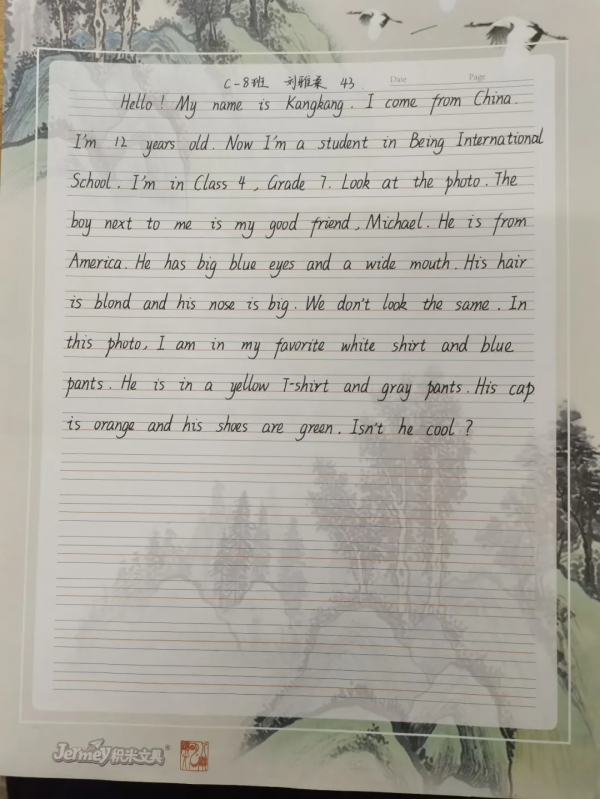 C-8班 刘雅柔 43 Date Page
Hello! My name is Kangkang. I come from China.
I'm 12 years old. Now I'm a student in Being International
School. I'm in Class 4, Grade 7. Look at the photo. The
boy next to me is my good friend, Michael. He is from
America. He has big blue eyes and a wide mouth. His hair
is blond and his nose is big. We don't look the same. In
this photo, I am in my favorite white shirt and blue
pants. He is in a yellow T-shirt and gray pants. His cap
is orange and his shoes are green. Isn't he cool?
Jermey积米文具